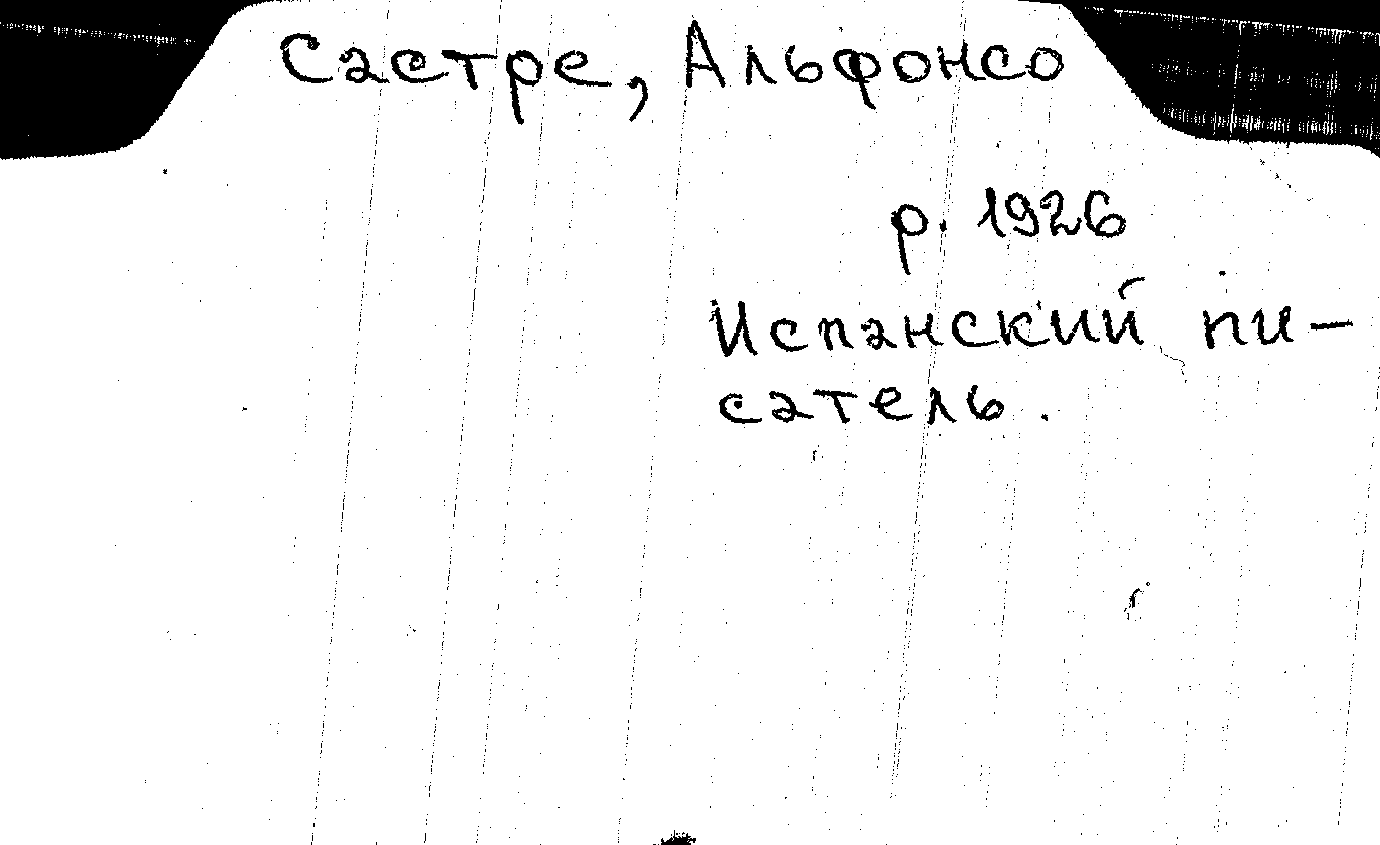 Састре, Альфонсо
р. 1926
Испанский пи-
сатель.